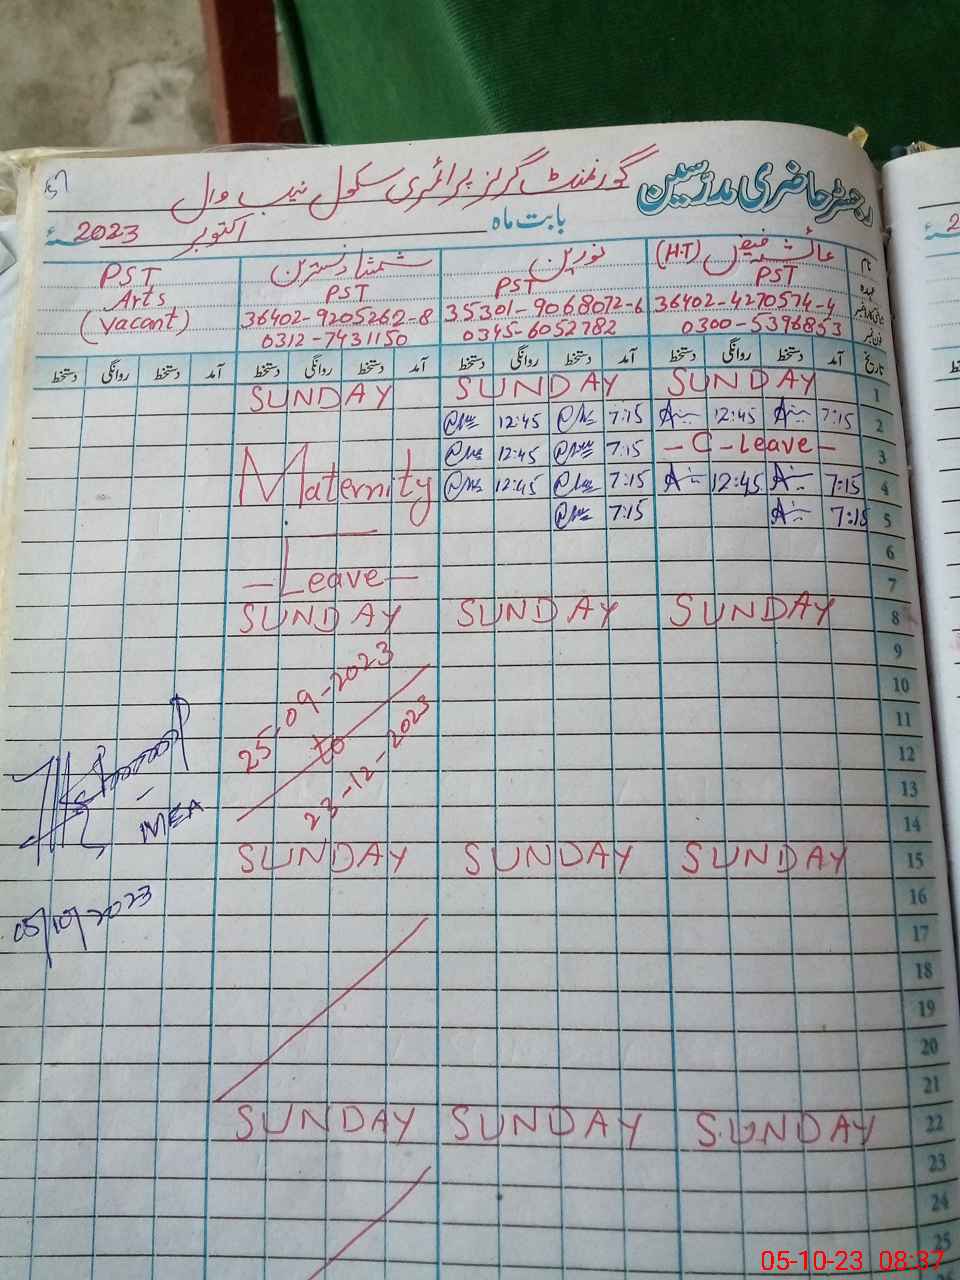 رجسٹر حاضری مدرسین گورنمنٹ گرلز پرائمری سکول نیب وال
بابت ماہ اکتوبر 2023ء
نام عائشہ فیض (H.T) نورین شمشاد نسترین PST
عہدہ PST PST PST Arts
36402-4270574-4 35301-9068072-6 36402-9205262-8 (Vacant)
0300-5396853 0345-6052782 0312-7431150
تاریخ آمد دستخط روانگی دستخط آمد دستخط روانگی دستخط آمد دستخط روانگی دستخط آمد دستخط روانگی دستخط
1 SUNDAY SUNDAY SUNDAY
2 7:15 12:45 7:15 12:45
3 -C-Leave- 7:15 12:45
4 7:15 12:45 7:15 12:45 Maternity
5 7:15 7:15
6
7 -Leave-
8 SUNDAY SUNDAY SUNDAY
9
10 25-09-2023
11
12 to
13 23-12-2023
14 MEA
15 SUNDAY SUNDAY SUNDAY
16 05/10/2023
17
18
19
20
21
22 SUNDAY SUNDAY SUNDAY
23
24
25
05-10-23 08:37